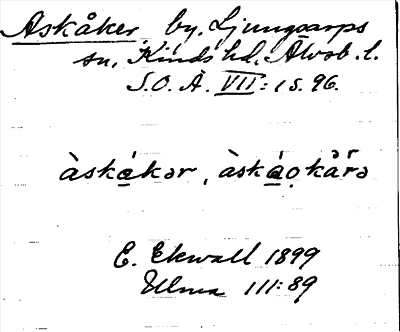 Askåker by, Ljungsarps
sn, Kinds hd, Älvsb. l.
S.O.Ä. VII:1 s. 96.
àskákər, àskáo̩kår̊ə
E. Ekwall 1899
Ulma 111:89